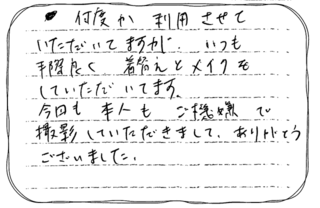 何度か利用させて
いただいてますが、いつも
手際良く 着替えとメイクを
していただいてます。
今回も本人もご機嫌で
撮影していただきまして、ありがとう
ございました。